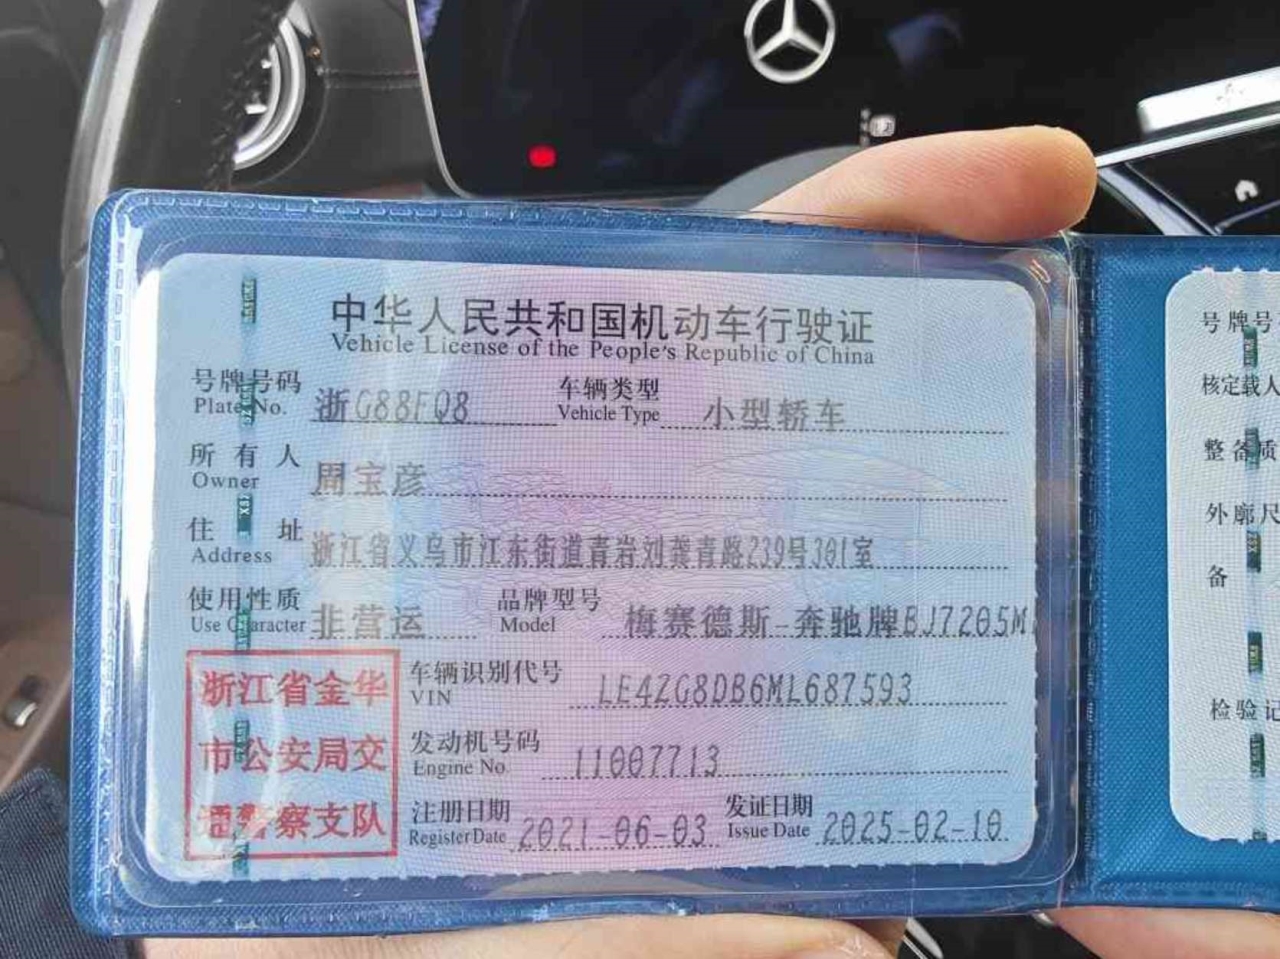 中华人民共和国机动车行驶证
Vehicle License of the People's Republic of China
号牌号码 浙G88FQ8 车辆类型 小型轿车
Plate No. Vehicle Type
所有人 周宝彦
Owner
住址 浙江省义乌市江东街道青岩刘龚青路239号301室
Address
使用性质 非营运 品牌型号 梅赛德斯-奔驰牌BJ7205M
Use Character Model
浙江省金华
市公安局交
通警察支队
车辆识别代号 LE4ZG8DB6ML687593
VIN
发动机号码 11007713
Engine No.
注册日期 2021-06-03 发证日期 2025-02-10
Register Date Issue Date
号牌号
核定载人
整备质
外廓尺
备
检验记